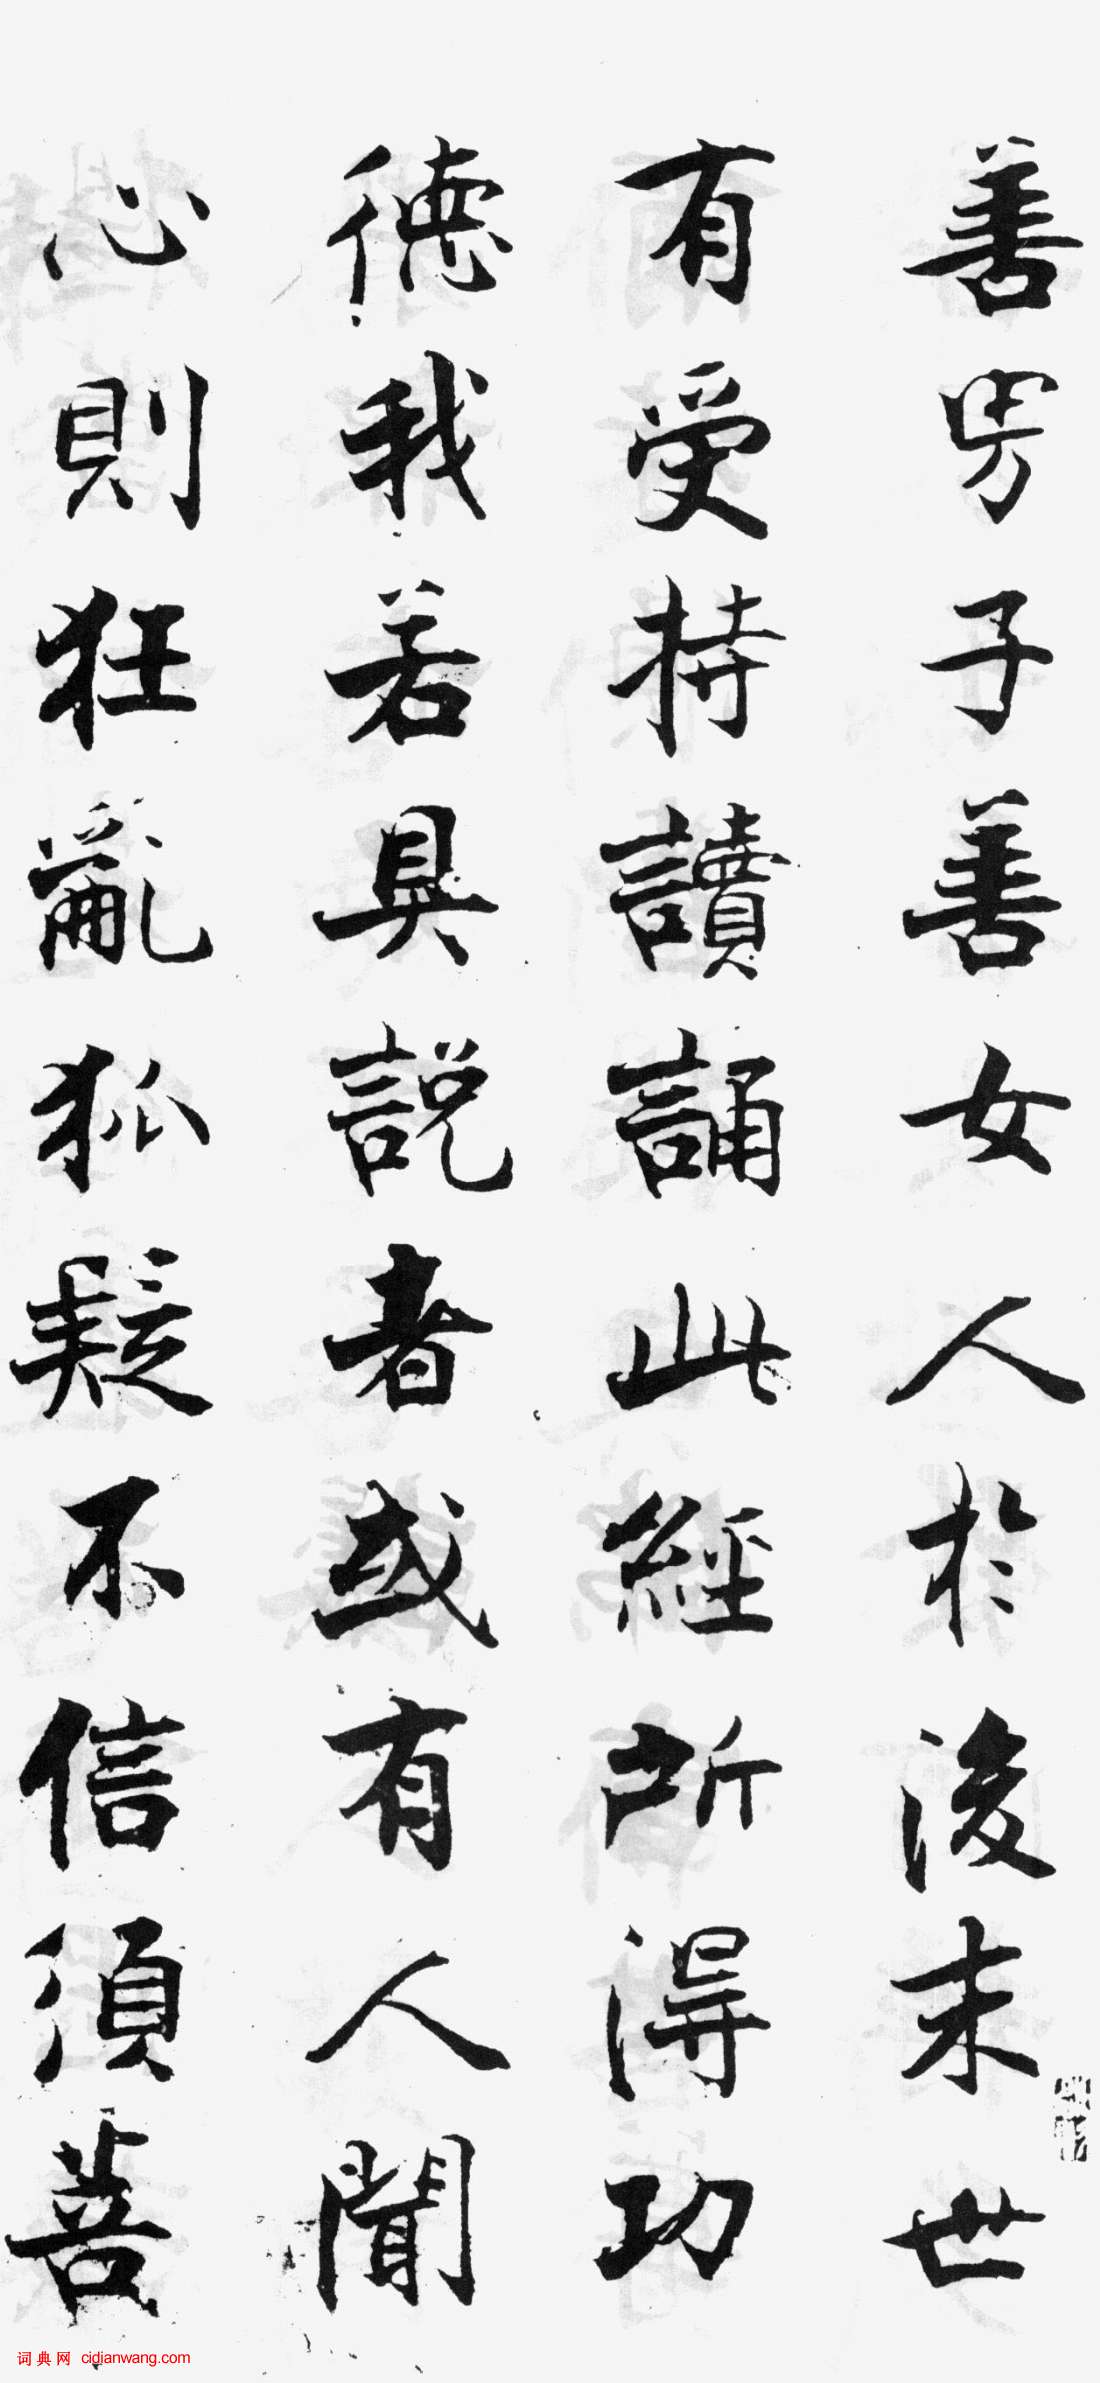 善男子善女人於後末世
有受持讀誦此經所得功
德我若具説者或有人聞
心則狂亂狐疑不信須菩
词典网 cidianwang.com